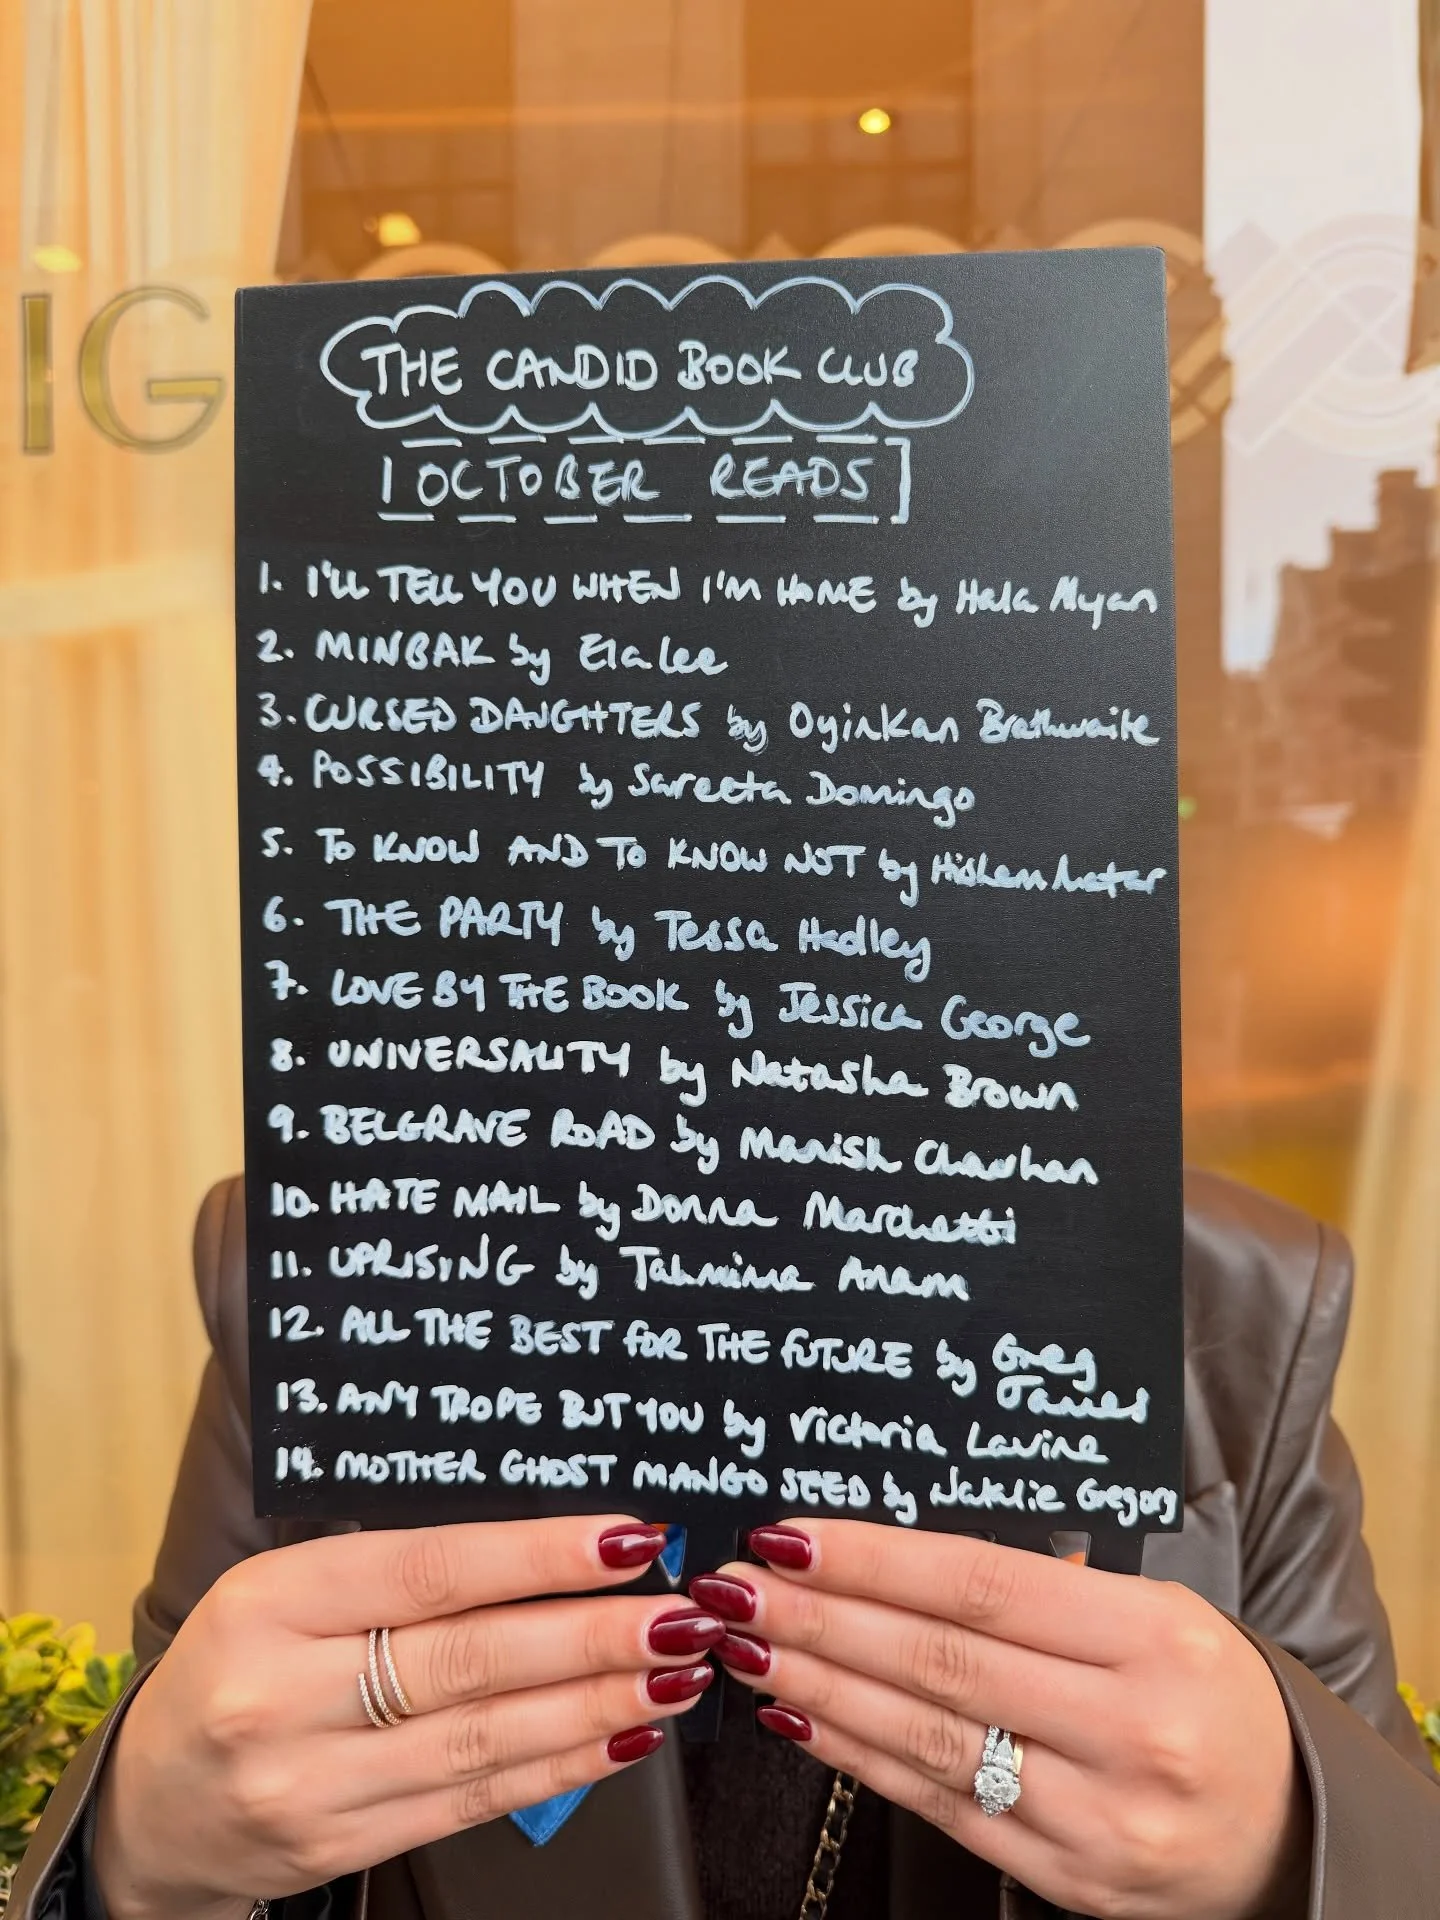 IG
THE CANDID BOOK CLUB
OCTOBER READS
1. I'LL TELL YOU WHEN I'M HOME by Hala Alyan
2. MINBAK by Ela Lee
3. CURSED DAUGHTERS by Oyinkan Brathwaite
4. POSSIBILITY by Sareeta Domingo
5. TO KNOW AND TO KNOW NOT by Hisham Matar
6. THE PARTY by Tessa Hadley
7. LOVE BY THE BOOK by Jessica George
8. UNIVERSALITY by Natasha Brown
9. BELGRAVE ROAD by Manish Chauhan
10. HATE MAIL by Donna Marchetti
11. UPRISING by Tahmima Anam
12. ALL THE BEST FOR THE FUTURE by Greg
James
13. ANY TROPE BUT YOU by Victoria Lavine
14. MOTHER GHOST MANGO SEED by Natalie Gregory